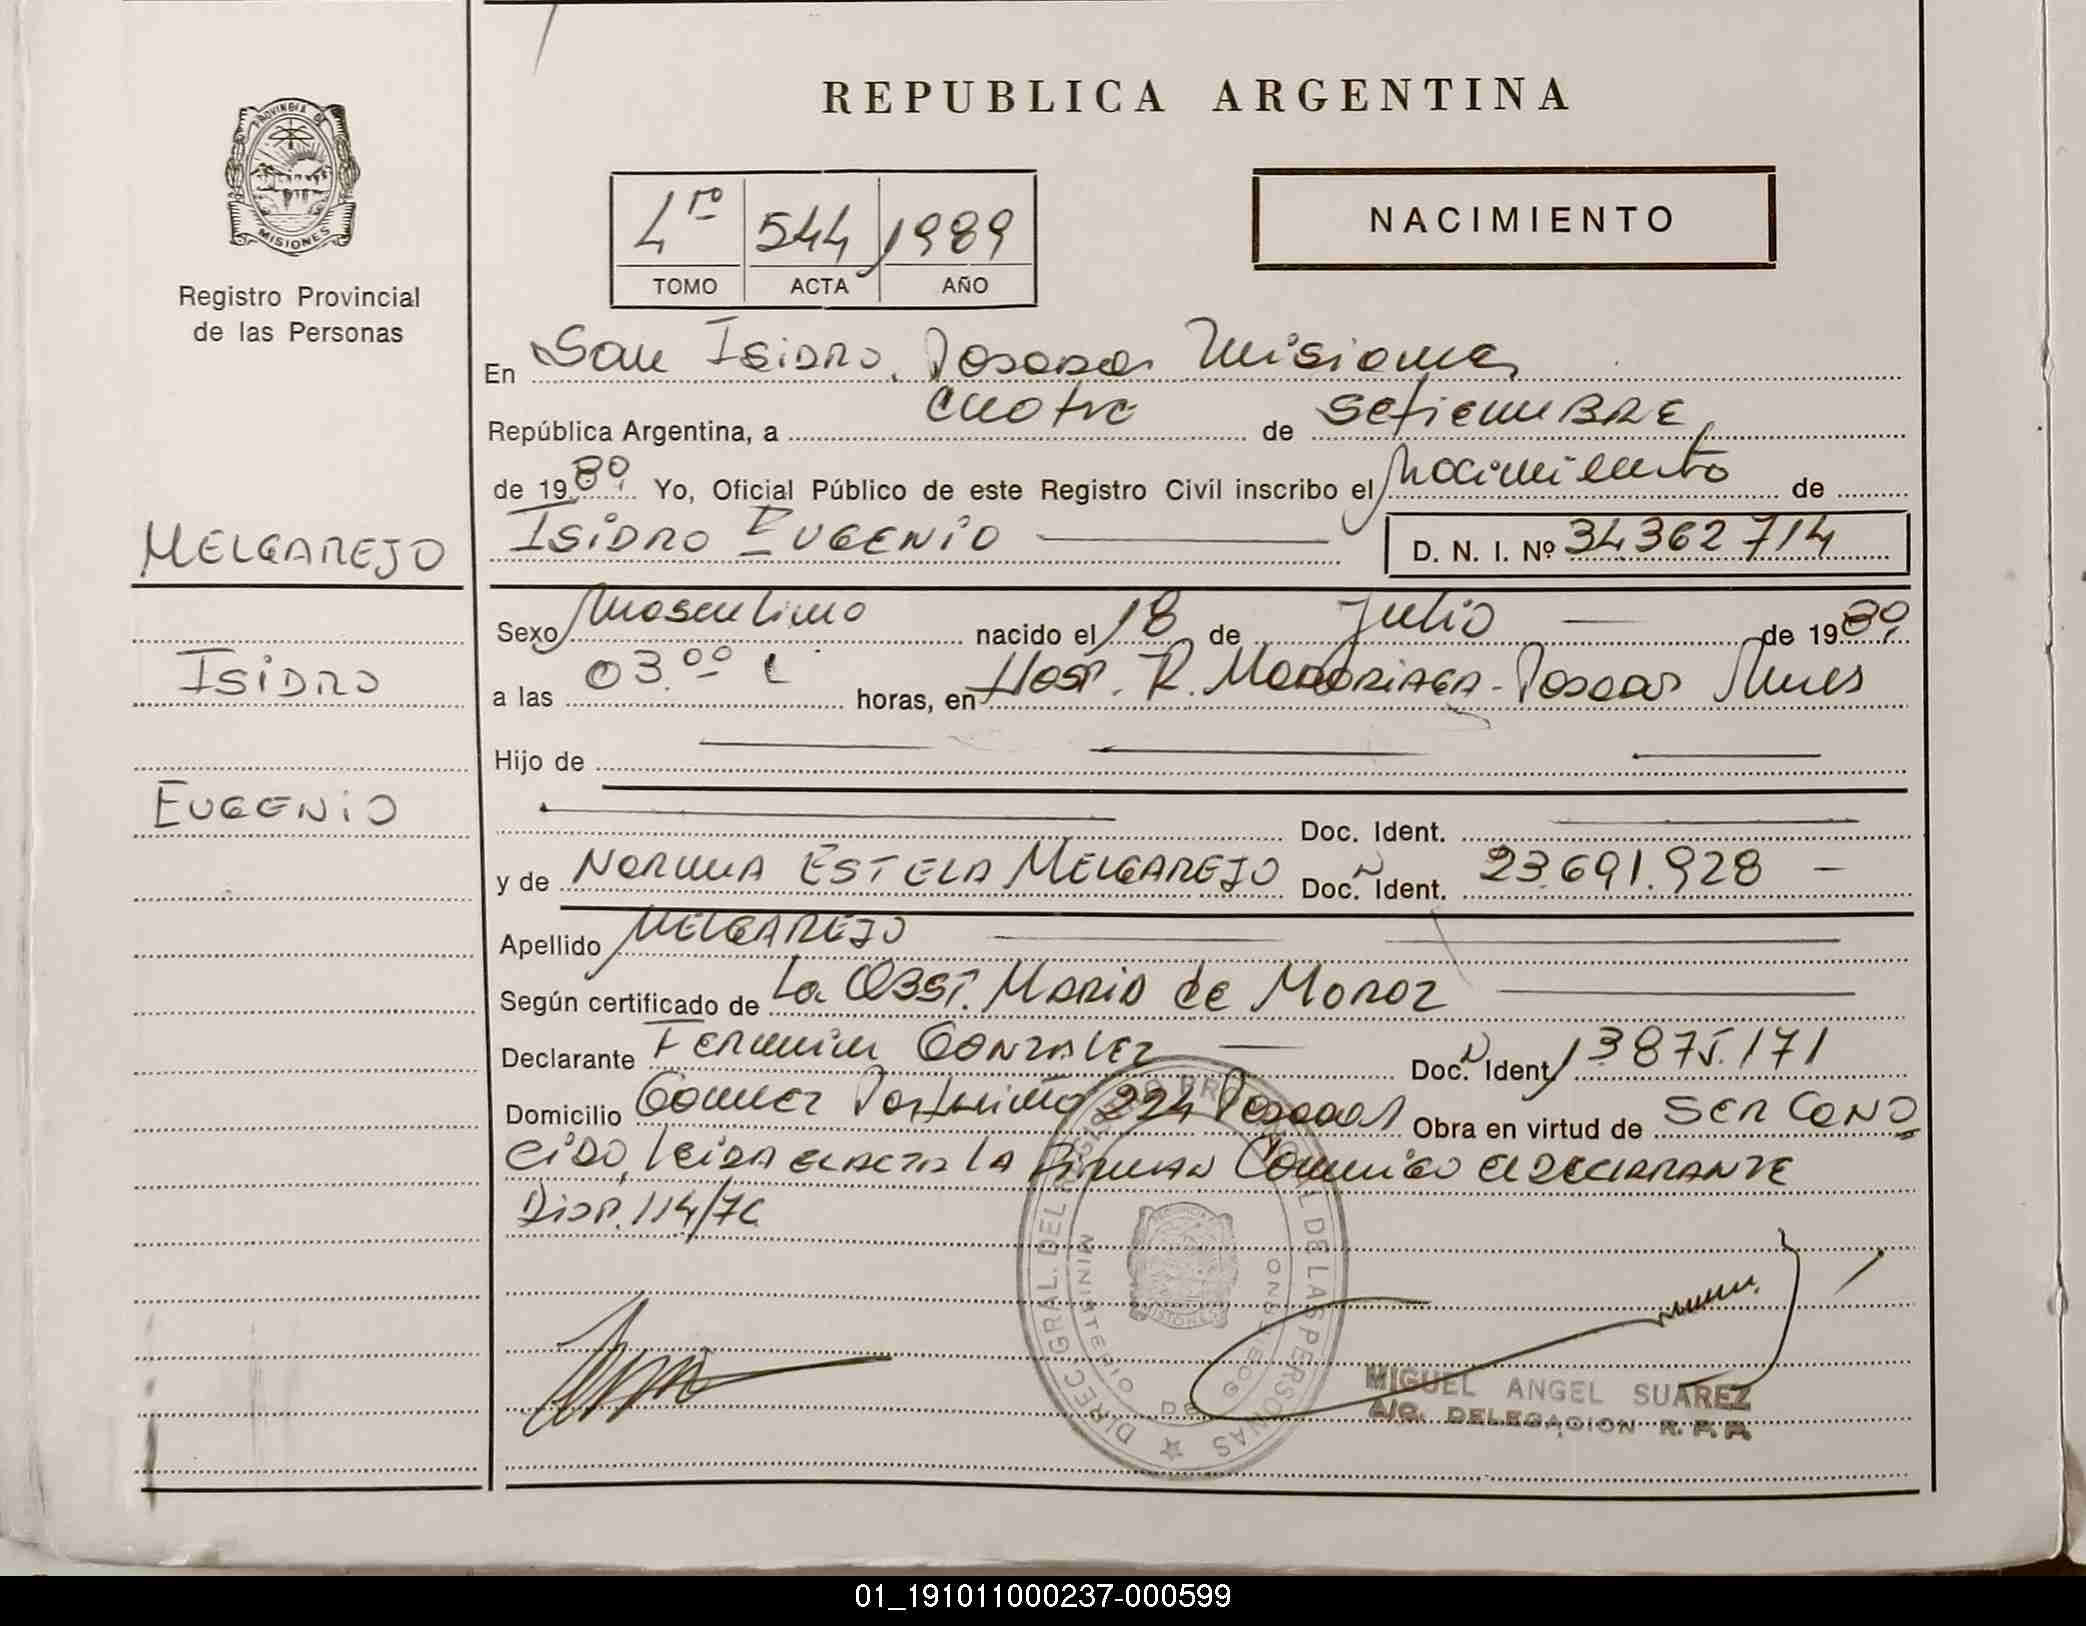 REPUBLICA ARGENTINA
PROVINCIA DE MISIONES
Registro Provincial
de las Personas
4ro 544 1989
TOMO ACTA AÑO
NACIMIENTO
En San Isidro, Posadas Misiones
República Argentina, a cuatro de setiembre
de 1989 Yo, Oficial Público de este Registro Civil inscribo el Nacimiento de
ISIDRO EUGENIO D. N. I. Nº 34362714
MELGAREJO
ISIDRO
EUGENIO
Sexo Masculino nacido el 18 de Julio de 1989
a las 03.00 horas, en Hosp. R. Madariaga - Posadas Mnes
Hijo de
Doc. Ident.
y de NORMA ESTELA MELGAREJO Doc. Ident. N 23.691.928 -
Apellido MELGAREJO
Según certificado de La OBST. Maria de Moroz
Declarante Fermin GONZALEZ Doc. Ident. N 13875.171
Domicilio Gomez Portinho 224 Posadas Obra en virtud de SER CONO
CIDO, leida el acta la firman conmigo el DECLARANTE
Disp. 114/76
DIREC. GRAL. DEL REGISTRO PROVINCIAL DE LAS PERSONAS
MINISTERIO DE GOBIERNO
MISIONES
MIGUEL ANGEL SUAREZ
A/C. DELEGACION R. P. P.
01_191011000237-000599